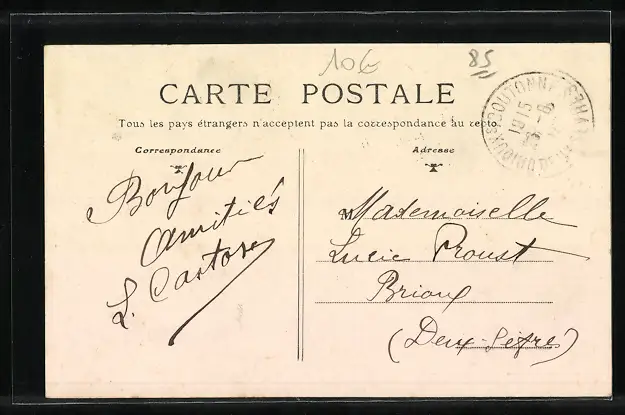 106
85
CARTE POSTALE
Tous les pays étrangers n'acceptent pas la correspondance au recto.
Correspondance
Adresse
Bonjour
Amitiés
L. Castore
Mademoiselle
Lucie Proust
Brioux
(Deux-Sèvres)